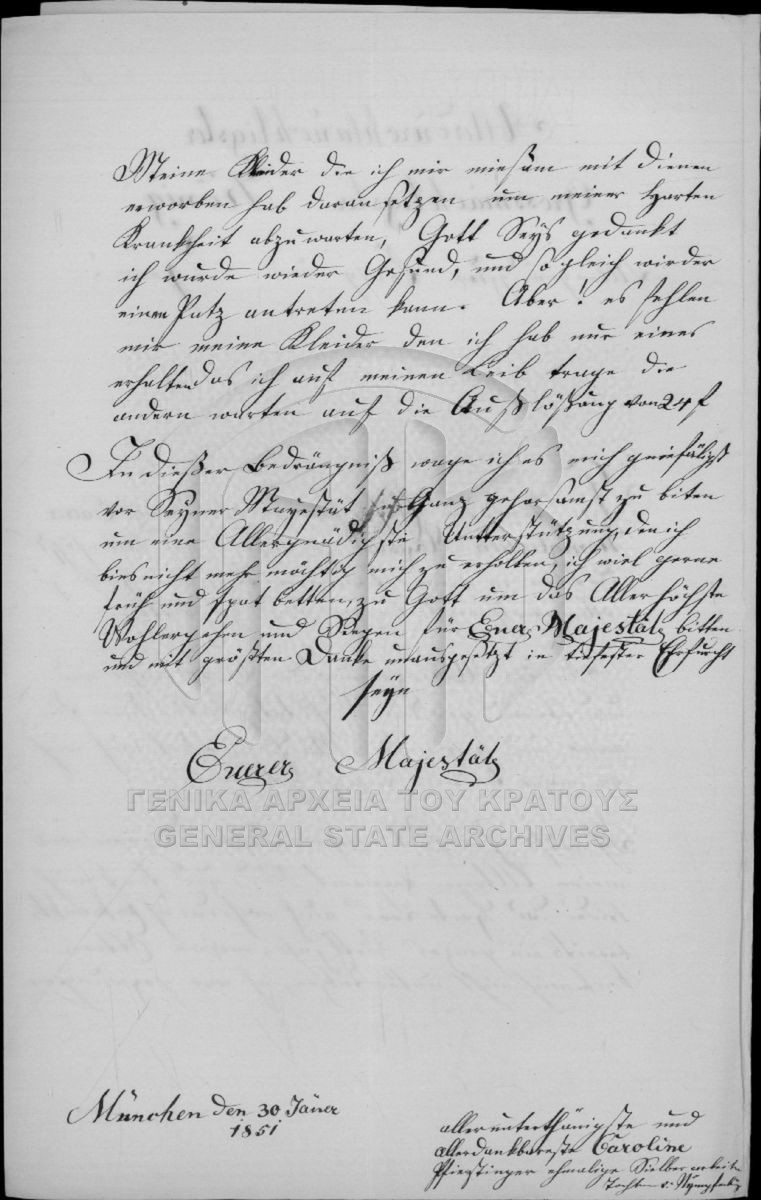 Meine Kleider die ich mir mießam mit dienen
erworben hab daran setzen um meiner Harten
Krankheit abzuwarten, Gott Seys gedankt
ich wurde wieder Gesund, und sogleich wieder
einen Patz antreten kann. Aber! es fehlen
mir meine Kleider den ich hab nur eines
erhalten das ich auf meinen Leib trage die
andern warten auf die Außlößung von 24 f
In dießer Bedrängniß wage ich es mich
vor Seyner Mayestät Ganz gehorsamst zu biten
um eine Allergnädigste Untterstützung, den ich
bies nicht mehr möchtig mich zu erholben, ich wiel gerne
früh und spat betten, zu Gott um das Allerhöchste
Wohlergehen und Seegen für Euer Majestät bitten
und mit größten Danke unausgesetzt in tiefester Ehrfurcht
seyn
Euerer Majestät
ΓΕΝΙΚΑ ΑΡΧΕΙΑ ΤΟΥ ΚΡΑΤΟΥΣ
GENERAL STATE ARCHIVES
München den 30 Jäner
1851
allerunterthänigste und
allerdankbareste Caroline
ehmalige Silberarbeiters
Tochter v: Nymphenbg